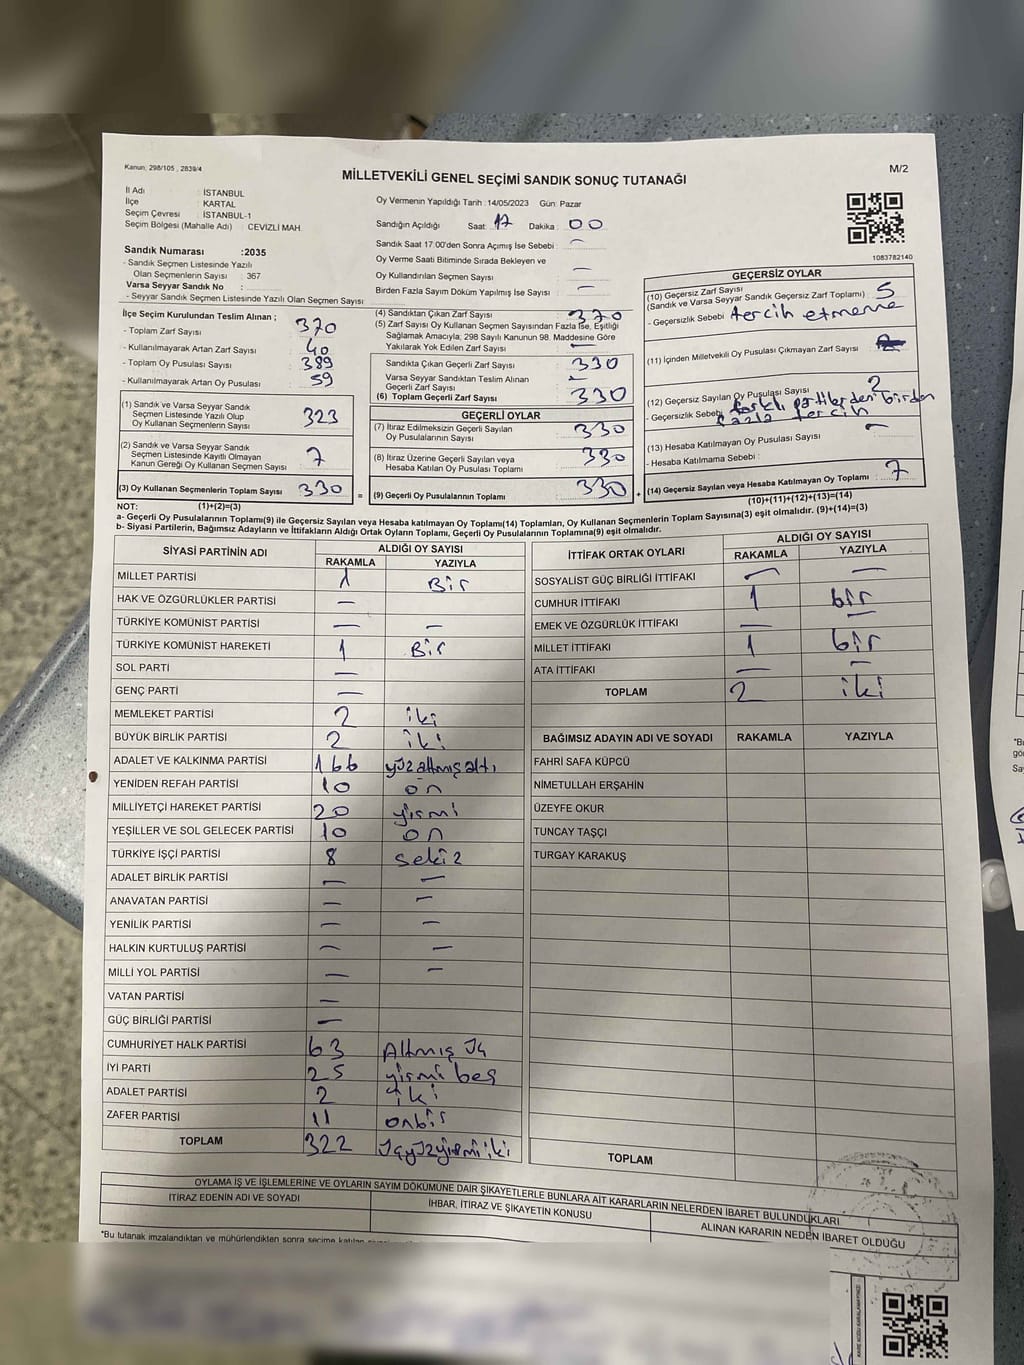 Kanun, 298/105 , 2839/4
M/2
MİLLETVEKİLİ GENEL SEÇİMİ SANDIK SONUÇ TUTANAĞI
İl Adı : İSTANBUL
İlçe : KARTAL
Seçim Çevresi : İSTANBUL-1
Seçim Bölgesi (Mahalle Adı) : CEVİZLİ MAH.
Sandık Numarası :2035
- Sandık Seçmen Listesinde Yazılı
Olan Seçmenlerin Sayısı : 367
Varsa Seyyar Sandık No :
- Seyyar Sandık Seçmen Listesinde Yazılı Olan Seçmen Sayısı :
Oy Vermenin Yapıldığı Tarih :14/05/2023 Gün: Pazar
Sandığın Açıldığı Saat: 17 Dakika : 00
Sandık Saat 17:00'den Sonra Açımış İse Sebebi : —
Oy Verme Saati Bitiminde Sırada Bekleyen ve
Oy Kullandırılan Seçmen Sayısı : —
Birden Fazla Sayım Döküm Yapılmış İse Sayısı : —
1083782140
İlçe Seçim Kurulundan Teslim Alınan ;
- Toplam Zarf Sayısı : 370
- Kullanılmayarak Artan Zarf Sayısı : 40
- Toplam Oy Pusulası Sayısı : 389
- Kullanılmayarak Artan Oy Pusulası : 59
(1) Sandık ve Varsa Seyyar Sandık
Seçmen Listesinde Yazılı Olup
Oy Kullanan Seçmenlerin Sayısı : 323
(2) Sandık ve Varsa Seyyar Sandık
Seçmen Listesinde Kayıtlı Olmayan
Kanun Gereği Oy Kullanan Seçmen Sayısı : 7
(3) Oy Kullanan Seçmenlerin Toplam Sayısı : 330
(1)+(2)=(3)
(4) Sandıktan Çıkan Zarf Sayısı : 370
(5) Zarf Sayısı Oy Kullanan Seçmen Sayısından Fazla İse, Eşitliği
Sağlamak Amacıyla; 298 Sayılı Kanunun 98. Maddesine Göre
Yakılarak Yok Edilen Zarf Sayısı : —
Sandıkta Çıkan Geçerli Zarf Sayısı : 330
Varsa Seyyar Sandıktan Teslim Alınan
Geçerli Zarf Sayısı : —
(6) Toplam Geçerli Zarf Sayısı : 330
GEÇERLİ OYLAR
(7) İtiraz Edilmeksizin Geçerli Sayılan
Oy Pusulalarının Sayısı : 330
(8) İtiraz Üzerine Geçerli Sayılan veya
Hesaba Katılan Oy Pusulası Toplamı : 330
= (9) Geçerli Oy Pusulalarının Toplamı : 330 +
GEÇERSİZ OYLAR
(10) Geçersiz Zarf Sayısı
(Sandık ve Varsa Seyyar Sandık Geçersiz Zarf Toplamı) : 5
- Geçersizlik Sebebi : tercih etmeme
(11) İçinden Milletvekili Oy Pusulası Çıkmayan Zarf Sayısı :
(12) Geçersiz Sayılan Oy Pusulası Sayısı : 2
- Geçersizlik Sebebi : farklı partilerden birden
fazla tercih
(13) Hesaba Katılmayan Oy Pusulası Sayısı : —
- Hesaba Katılmama Sebebi :
(14) Geçersiz Sayılan veya Hesaba Katılmayan Oy Toplamı : 7
(10)+(11)+(12)+(13)=(14)
NOT:
a- Geçerli Oy Pusulalarının Toplamı(9) ile Geçersiz Sayılan veya Hesaba katılmayan Oy Toplamı(14) Toplamları, Oy Kullanan Seçmenlerin Toplam Sayısına(3) eşit olmalıdır. (9)+(14)=(3)
b- Siyasi Partilerin, Bağımsız Adayların ve İttifakların Aldığı Ortak Oyların Toplamı, Geçerli Oy Pusulalarının Toplamına(9) eşit olmalıdır.
SİYASİ PARTİNİN ADI ALDIĞI OY SAYISI
RAKAMLA YAZIYLA
MİLLET PARTİSİ 1 Bir
HAK VE ÖZGÜRLÜKLER PARTİSİ —
TÜRKİYE KOMÜNİST PARTİSİ — —
TÜRKİYE KOMÜNİST HAREKETİ 1 Bir
SOL PARTİ —
GENÇ PARTİ —
MEMLEKET PARTİSİ 2 iki
BÜYÜK BİRLİK PARTİSİ 2 iki
ADALET VE KALKINMA PARTİSİ 166 yüzaltmışaltı
YENİDEN REFAH PARTİSİ 10 on
MİLLİYETÇİ HAREKET PARTİSİ 20 yirmi
YEŞİLLER VE SOL GELECEK PARTİSİ 10 on
TÜRKİYE İŞÇİ PARTİSİ 8 sekiz
ADALET BİRLİK PARTİSİ — —
ANAVATAN PARTİSİ — —
YENİLİK PARTİSİ — —
HALKIN KURTULUŞ PARTİSİ — —
MİLLİ YOL PARTİSİ — —
VATAN PARTİSİ —
GÜÇ BİRLİĞİ PARTİSİ —
CUMHURİYET HALK PARTİSİ 63 Altmış üç
İYİ PARTİ 25 yirmi beş
ADALET PARTİSİ 2 iki
ZAFER PARTİSİ 11 onbir
TOPLAM 322 üçyüzyirmiiki
İTTİFAK ORTAK OYLARI ALDIĞI OY SAYISI
RAKAMLA YAZIYLA
SOSYALİST GÜÇ BİRLİĞİ İTTİFAKI — —
CUMHUR İTTİFAKI 1 bir
EMEK VE ÖZGÜRLÜK İTTİFAKI — —
MİLLET İTTİFAKI 1 bir
ATA İTTİFAKI — —
TOPLAM 2 iki
BAĞIMSIZ ADAYIN ADI VE SOYADI RAKAMLA YAZIYLA
FAHRİ SAFA KÜPCÜ
NİMETULLAH ERŞAHİN
ÜZEYFE OKUR
TUNCAY TAŞÇI
TURGAY KARAKUŞ
TOPLAM
OYLAMA İŞ VE İŞLEMLERİNE VE OYLARIN SAYIM DÖKÜMÜNE DAİR ŞİKAYETLERLE BUNLARA AİT KARARLARIN NELERDEN İBARET BULUNDUKLARI
İTİRAZ EDENİN ADI VE SOYADI
İHBAR, İTİRAZ VE ŞİKAYETİN KONUSU
ALINAN KARARIN NEDEN İBARET OLDUĞU
*Bu tutanak imzalandıktan ve mühürlendikten sonra seçime katılan